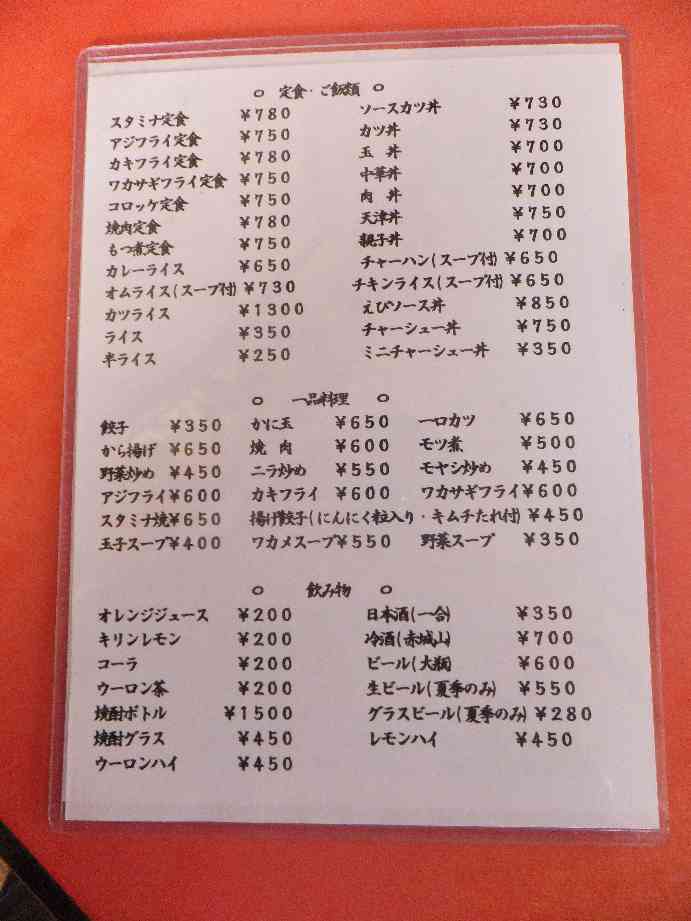 ○ 定食・ご飯類 ○
スタミナ定食 ￥780 ソースカツ丼 ￥730
アジフライ定食 ￥750 カツ丼 ￥730
カキフライ定食 ￥780 玉 丼 ￥700
ワカサギフライ定食 ￥750 中華丼 ￥700
コロッケ定食 ￥750 肉 丼 ￥700
焼肉定食 ￥780 天津丼 ￥750
もつ煮定食 ￥750 親子丼 ￥700
カレーライス ￥650 チャーハン(スープ付) ￥650
オムライス(スープ付) ￥730 チキンライス(スープ付) ￥650
カツライス ￥1300 えびソース丼 ￥850
ライス ￥350 チャーシュー丼 ￥750
半ライス ￥250 ミニチャーシュー丼 ￥350
○ 一品料理 ○
餃子 ￥350 かに玉 ￥650 一口カツ ￥650
から揚げ ￥650 焼 肉 ￥600 モツ煮 ￥500
野菜炒め ￥450 ニラ炒め ￥550 モヤシ炒め ￥450
アジフライ ￥600 カキフライ ￥600 ワカサギフライ ￥600
スタミナ焼 ￥650 揚げ餃子(にんにく粒入り・キムチたれ付) ￥450
玉子スープ ￥400 ワカメスープ ￥550 野菜スープ ￥350
○ 飲み物 ○
オレンジジュース ￥200 日本酒(一合) ￥350
キリンレモン ￥200 冷酒(赤城山) ￥700
コーラ ￥200 ビール(大瓶) ￥600
ウーロン茶 ￥200 生ビール(夏季のみ) ￥550
焼酎ボトル ￥1500 グラスビール(夏季のみ) ￥280
焼酎グラス ￥450 レモンハイ ￥450
ウーロンハイ ￥450